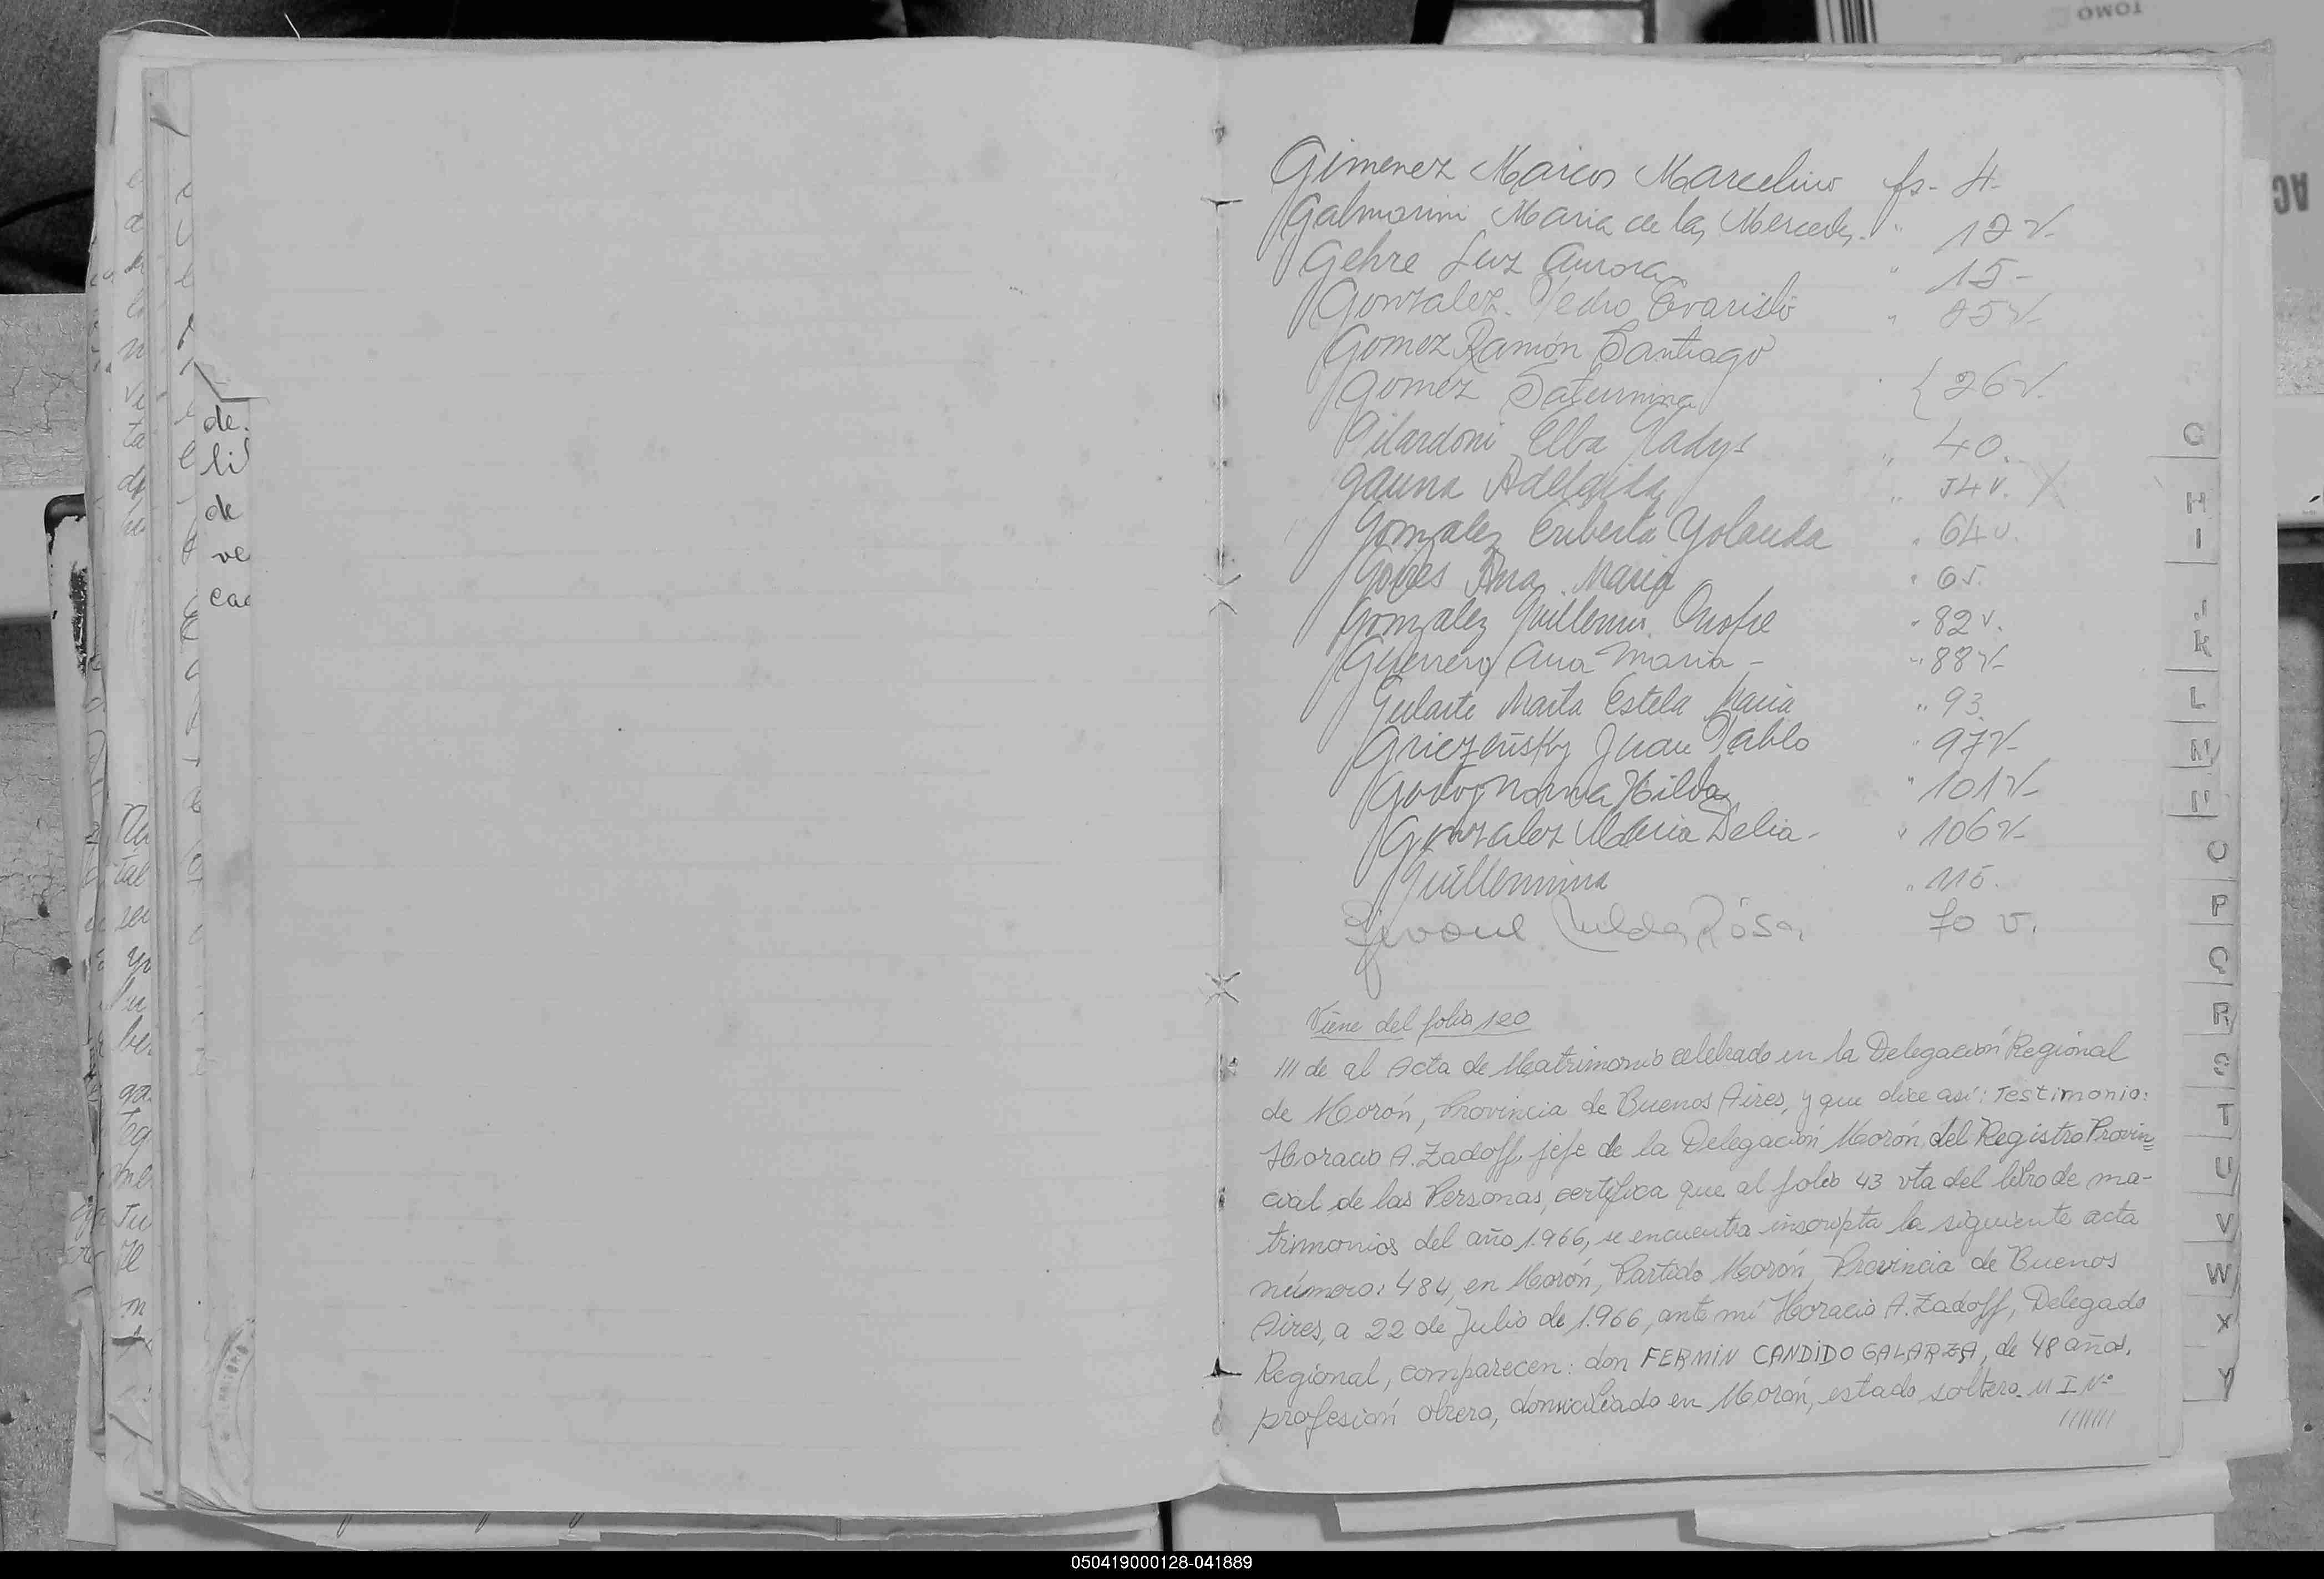 TOMO
de.
li
de
ve
Gimenez Marcos Marcelino fs- 4-
Galmarini Maria de las Mercedes. " 12 v-
Gehre Luz Aurora " 15-
Gonzalez. Pedro Evaristo " 25 v-
Gomez Ramón Santiago
Gomez Saturnina { 26 v.
Gilardoni Elba Gladys " 40.
Gauna Adelaida " 54 v. X
Gonzalez Eriberta Yolanda " 64 v.
Ana Maria " 65.
Gonzalez Guillermo Onofre " 82 v.
Guerrero Ana Maria - " 88 v-
Gularte Marta Estela Maria " 93
Griezeñsky Juan Pablo " 97 v-
Godoy Norma Hilda " 101 v-
Gonzalez Maria Delia - " 106 v-
Guillermina " 115.
Rosa 70 v.
Viene del folio 120
/// de al Acta de Matrimonio celebrado en la Delegación Regional
de Morón, Provincia de Buenos Aires, y que dice así: Testimonio:
Horacio A. Zadoff, jefe de la Delegación Morón, del Registro Provin=
cial de las Personas, certifica que al folio 43 vta del libro de ma-
trimonios del año 1.966, se encuentra inscripta la siguiente acta
número: 484, en Morón, Partido Morón, Provincia de Buenos
Aires, a 22 de Julio de 1.966, ante mí Horacio A. Zadoff, Delegado
Regional, comparecen: don FERMIN CANDIDO GALARZA, de 48 años,
profesión obrero, domiciliado en Morón, estado soltero. M I Nº
///////
G
H
I
J
K
L
M
N
O
P
Q
R
S
T
U
V
W
X
Y
050419000128-041889